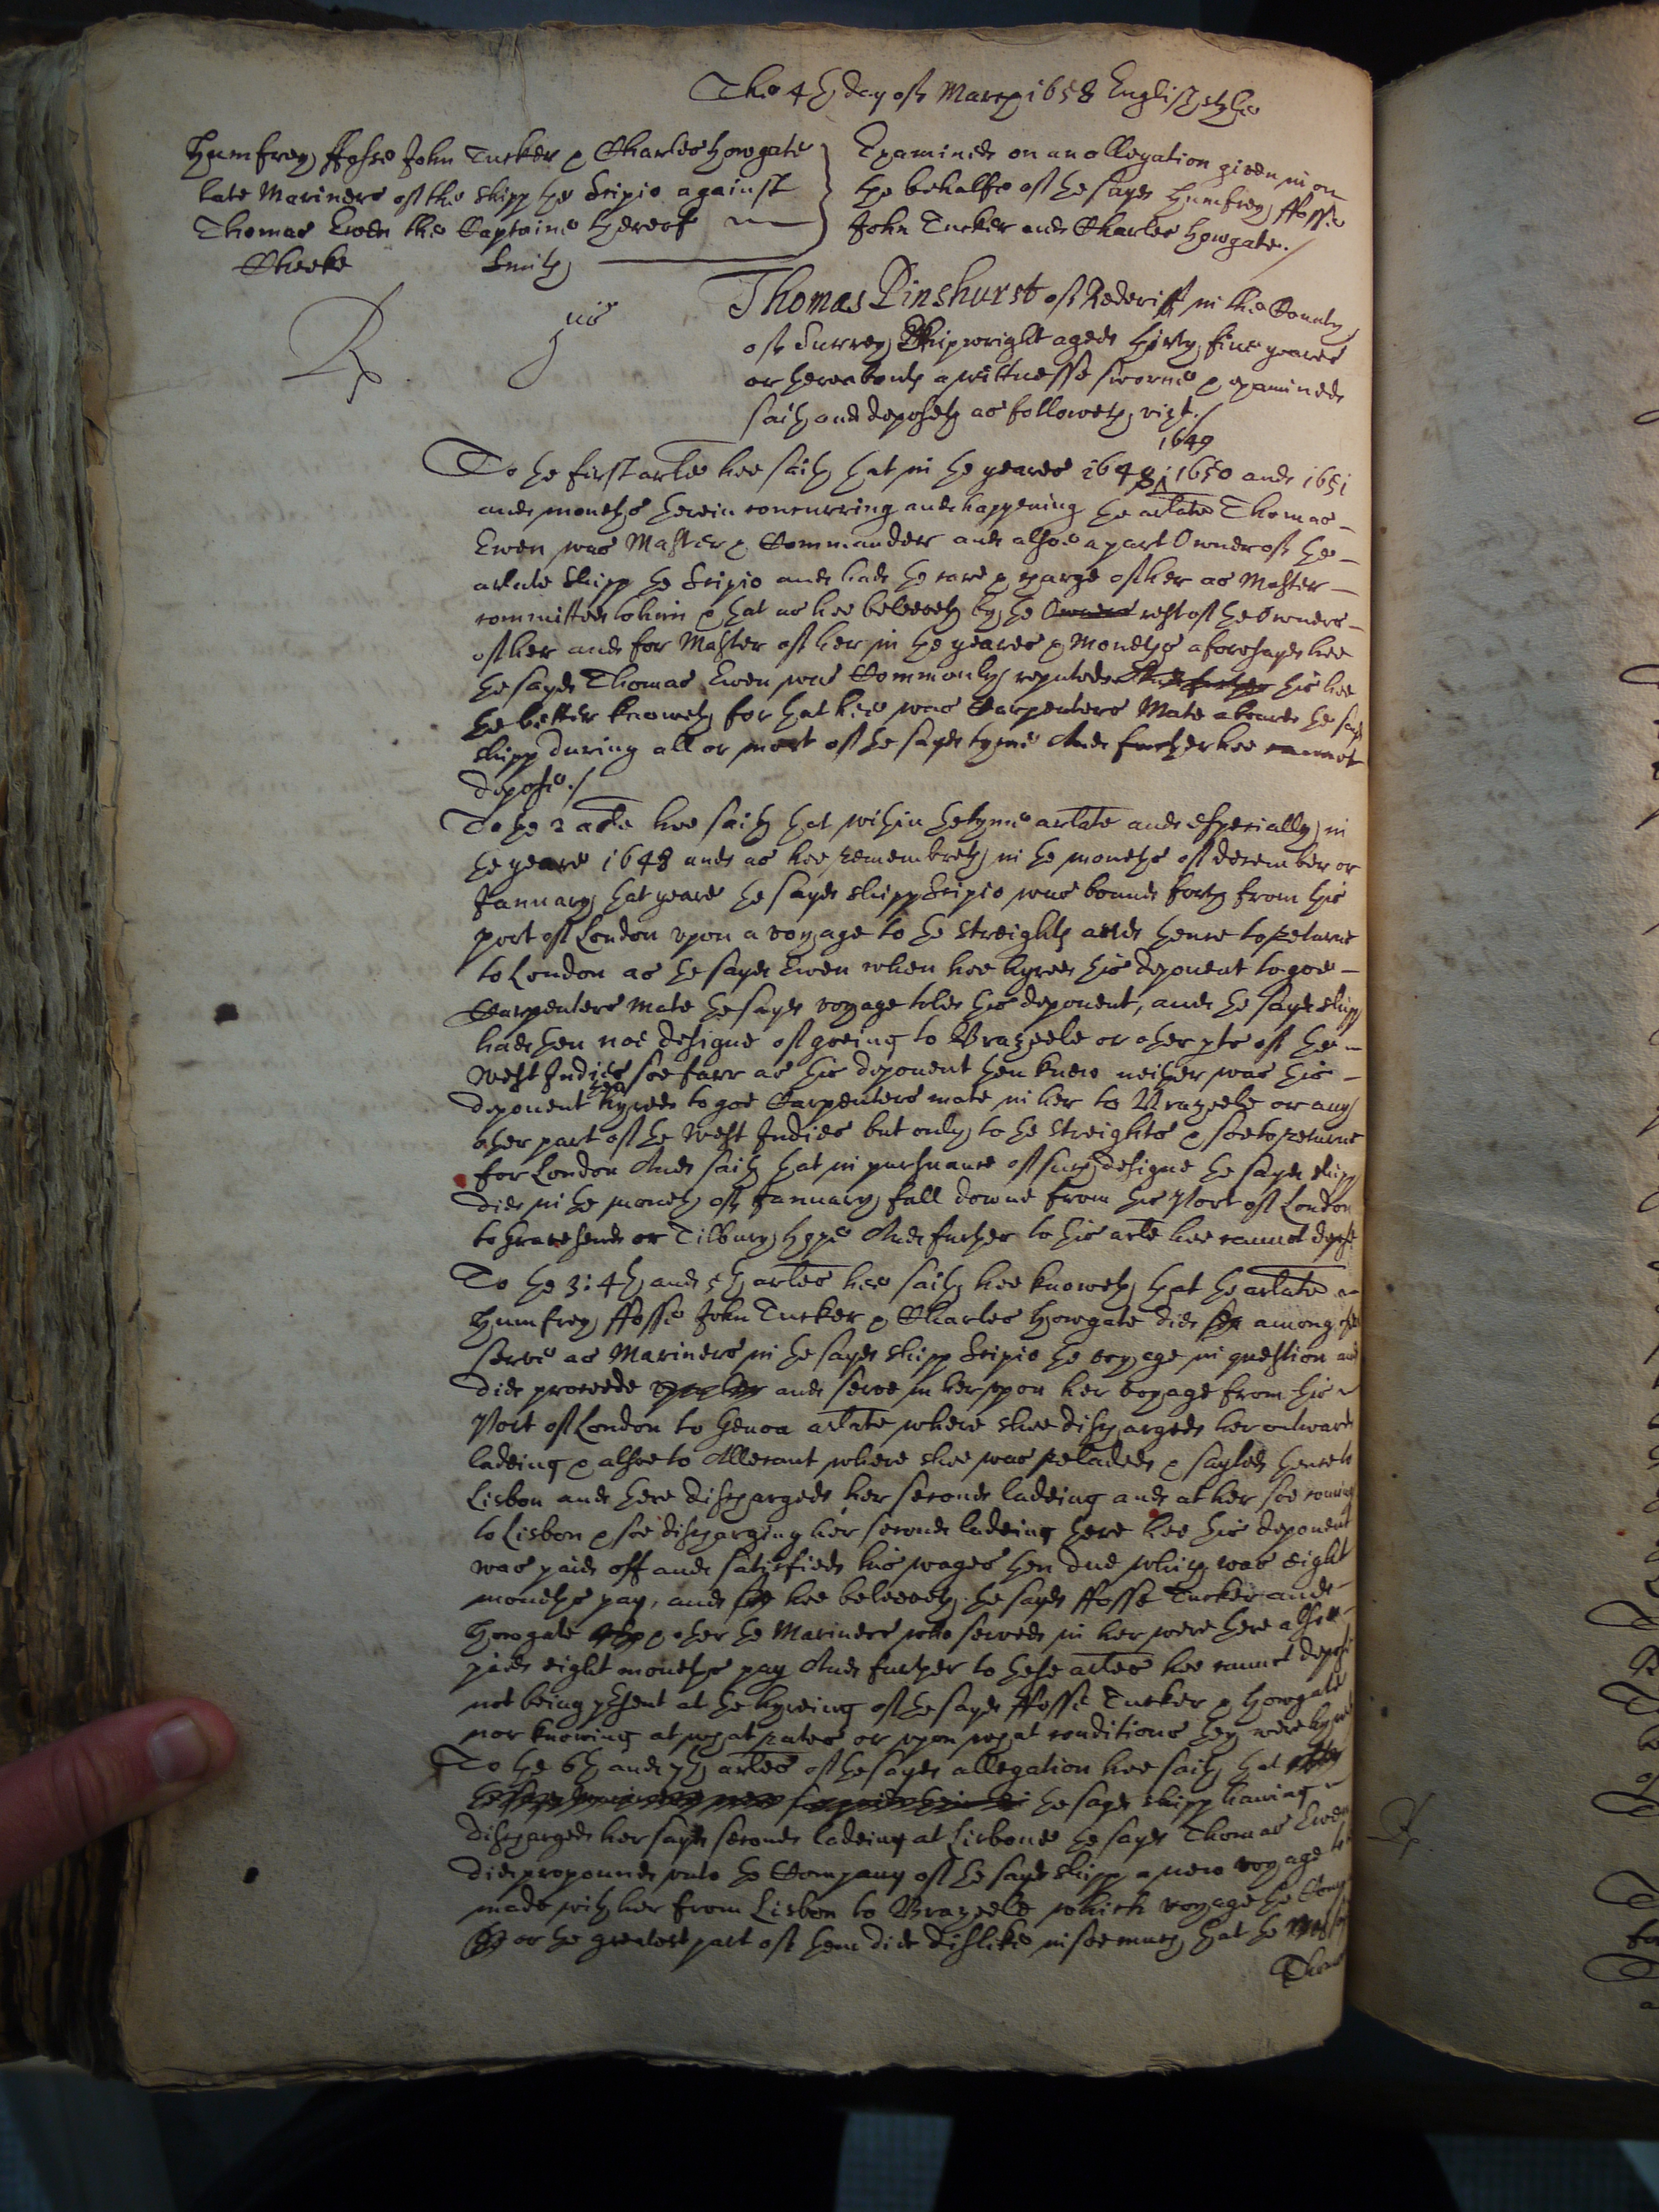 The 4th day of March 1658 English style
Humfrey ffosse John Tucker & Charles Howgate
late Mariners of the shipp the Scipio against
Thomas Ewen the Captaine thereof
Cheeke Smith
Examined on an allegation given in on
the behalfe of the sayd Humfrey ffosse
John Tucker and Charles Howgate./
Rp. jus
Thomas Pinshurst of Rederiff in the County
of Surrey Shipwright aged thirty five yeares
or thereabouts a wittnesse sworne & examined
saith and deposeth as followeth, vizt./
1649
To the first arle hee saith that in the yeares 1648: 1650 and 1651
and moneths therein concurring and happening the arlate Thomas
Ewen was Master & Commander and alsoe a part Owner of the
arlate shipp the Scipio and had the care & charge of her as Master
committed to him & that as hee beleeveth by the Owners rest of the Owners
of her and for Master of her in the yeares & moneths aforesayd hee
the sayd Thomas Ewen was Commonly reputed And further this hee
the better knoweth for that hee was Carpenters Mate aboard the sayd
shipp during all or most of the sayd tyme And further hee cannot
depose./
To the 2 arle hee saith that within the tyme arlate and especially in
the yeare 1648 and as hee remembreth in the moneths of december or
January that yeare the sayd shipp Scipio was bound forth from this
port of London upon a voyage to the Streights and thence to returne
to London as the sayd Ewen when hee hyred this deponent to goe
Carpenters Mate the sayd voyage told this deponent, and the sayd shipp
had then noe designe of goeing to Brazeele or other pts of the
West Indies soe farr as this deponent then knew neither was this
then
deponent hyred to goe Carpenters mate in her to Brazeele or any
other part of the West Indies but only to the Streights & soe to returne
for London And saith that in pursuance of such designe the sayd shipp
did in the moneth of January fall downe from this Port of London
to Gravesend or Tilbury hope And further to this arle hee cannot depose
To the 3: 4th and 5th arles hee saith hee knoweth that the arlate
Humfrey ffosse John Tucker & Charles Howgate did among others
serve as Mariners in the sayd shipp Scipio the voyage in question and
did proceede and serve in her upon her voyage from this
Port of London to Genoa arlate where shee discharged her outward
ladeing & alsoe to Allecant where shee was reladed & sayled thence to
Lisbon and there discharged her second ladeing and at her soe coming
to Lisbon & soe discharging her second ladeing there hee this deponent
was paid off and satisfied his wages then due which was eight
moneths pay, and hee beleeveth the sayd ffosse Tucker and
Howgate & other the Mariners who served in her were there alsoe
paid eight moneths pay And further to these arles hee cannot depose
not being present at the hyreing of the sayd ffosse Tucker & Howgate
nor knowing at what rates or upon what conditions they were hyred
To the 6th and 7th arles of the sayd allegation hee saith that
the sayd shipp having
discharged her sayd second ladeing at Lisbone the sayd Thomas Ewen
did propound unto the Company of the sayd shipp a new voyage to be
made with her from Lisbon to Brazeele which voyage the Company
or the greatest part of them did dislike in soe much that the
Thomas